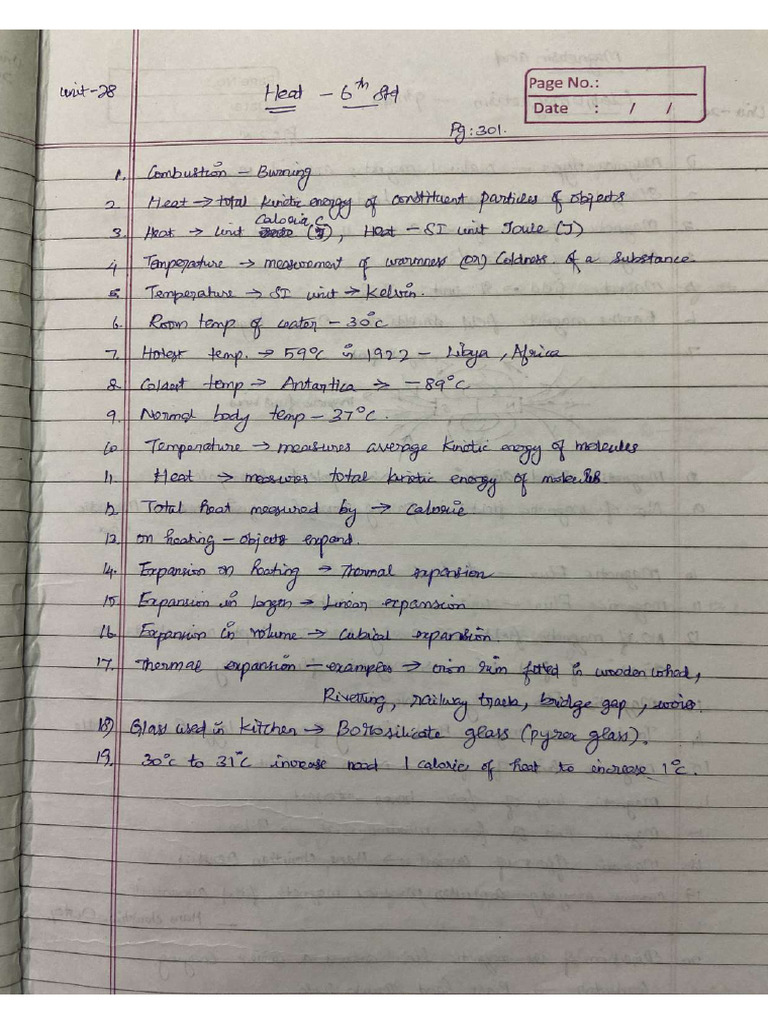 Unit-28
Heat - 6th Std
Page No.:
Date : / /
Pg:301.
1. Combustion - Burning
2 Heat → total kinetic energy of constituent particles of objects
3. Heat → unit Calorie, C, Heat - SI unit Joule (J)
4 Temperature → measurement of warmness (or) Coldness of a substance
5 Temperature → SI unit → Kelvin.
6. Room temp of water - 30°c
7. Hotest temp. → 59°c in 1922 - Libya, Africa
8 Coldest temp → Antartica → -89°c
9. Normal body temp - 37°c.
10 Temperature → measures average kinetic energy of molecules
11. Heat → measures total kinetic energy of molecules
12 Total heat measured by → calorie
13. on heating - objects expand.
14. Expansion on heating → Thermal expansion
15. Expansion in length → Linear expansion
16. Expansion in volume → cubical expansion
17. Thermal expansion - examples → iron rim fitted in wooden wheel,
Rivetting, railway track, bridge gap, wire.
18) Glass used in kitchen → Borosilicate glass (pyrex glass).
19. 30°c to 31°c increase need 1 calorie of heat to increase 1°c.